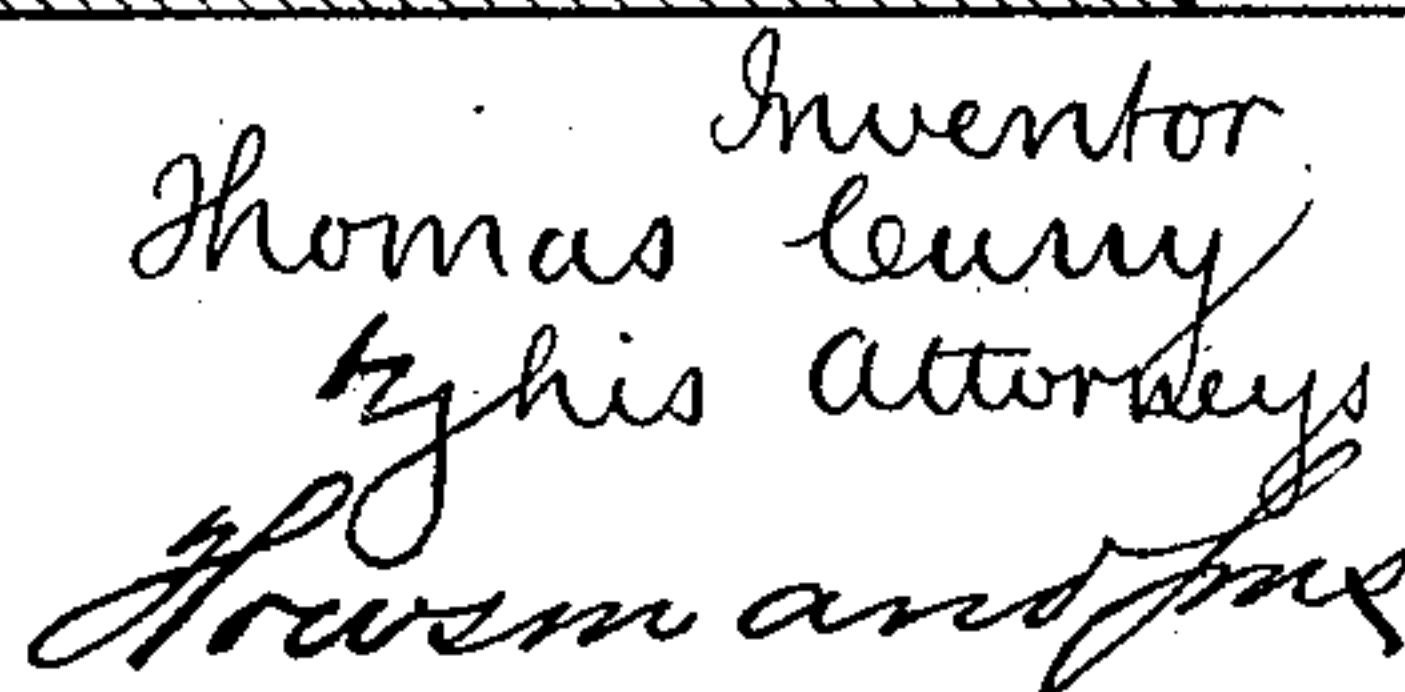 Inventor
Thomas Curry
by his Attorneys
Howson and Sons